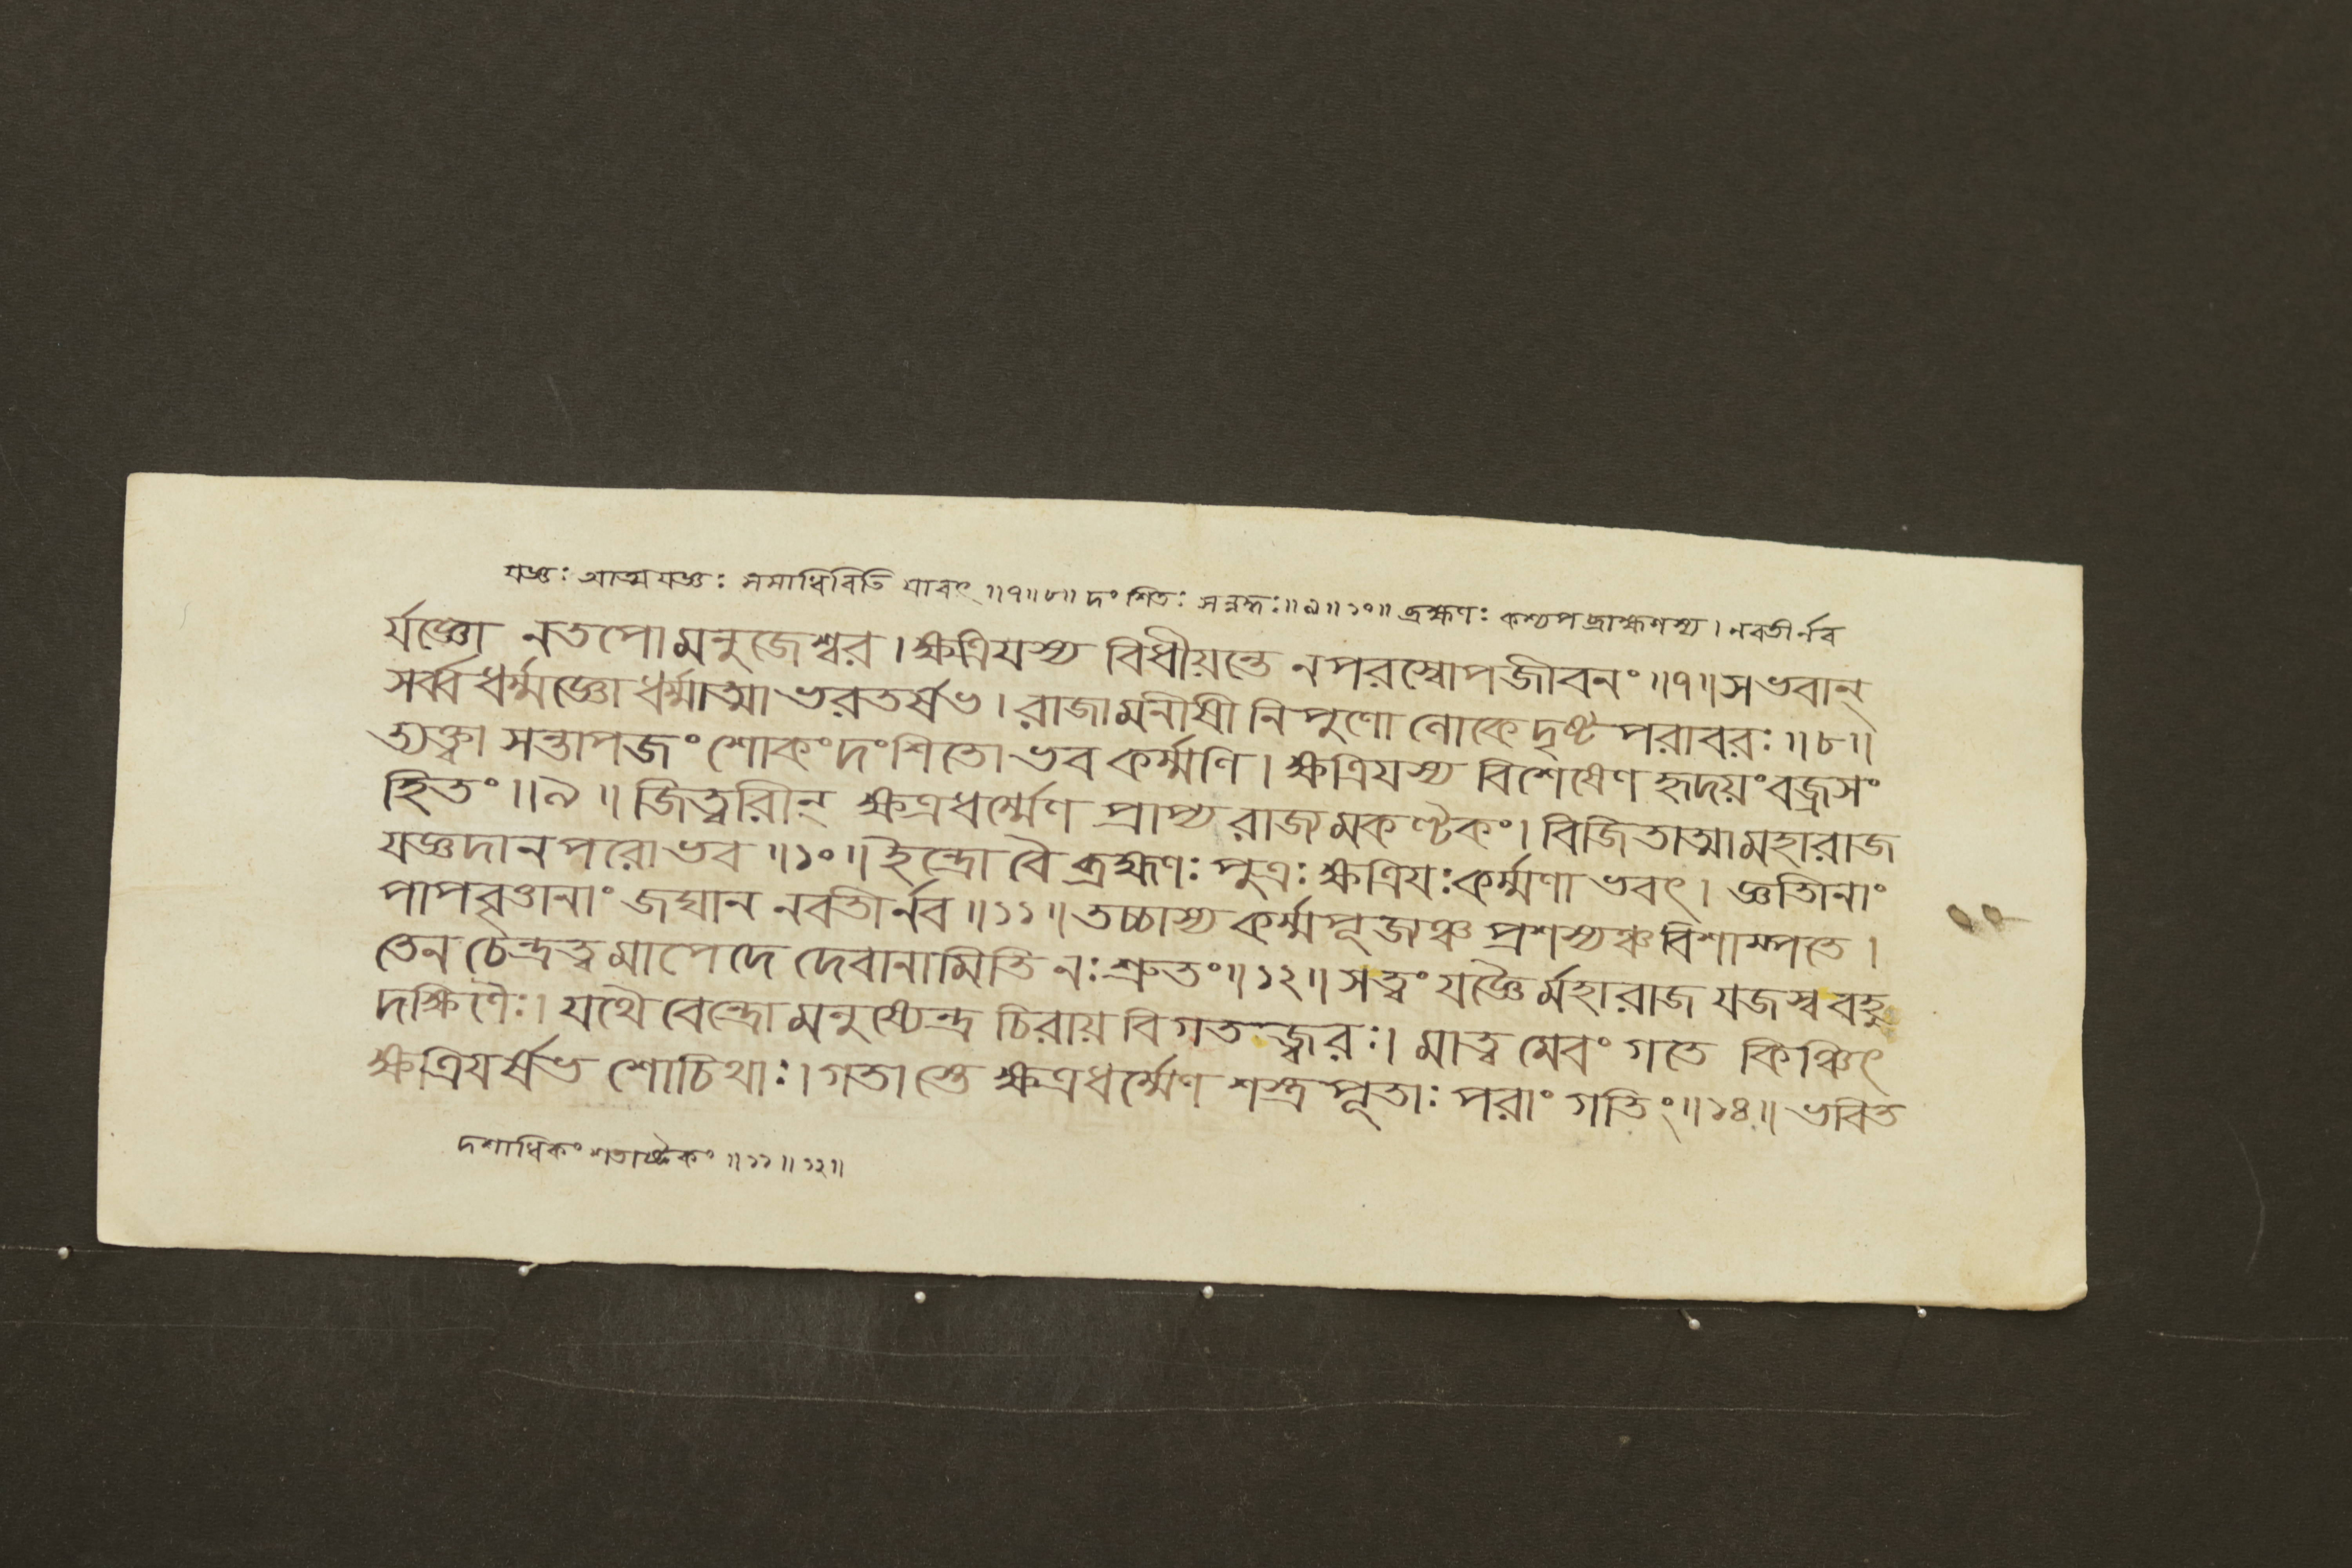 যজ্ঞঃ আত্মযজ্ঞঃ সমাধিরিতি যাবৎ ॥৭॥৮॥ দংশিতঃ সন্নদ্ধঃ॥৯॥১০॥ ব্রহ্মণঃ কশ্যপব্রাহ্মণস্য। নবতীর্নব
র্যজ্ঞো নতপো মনুজেশ্বর। ক্ষত্রিযস্য বিধীয়ন্তে নপরস্বোপজীবনং ॥৭॥ সভবান্
সর্ব্বধর্ম্মজ্ঞো ধর্ম্মাত্মা ভরতর্ষভ। রাজা মনীষী নিপুণো লোকে দৃষ্টপরাবরঃ ॥৮॥
ত্যক্ত্বা সন্তাপজং শোকং দংশিতো ভব কর্ম্মণি। ক্ষত্রিযস্য বিশেষেণ হৃদয়ং বজ্রসং
হিতং ॥৯॥ জিত্বারীন্ ক্ষত্রধর্ম্মেণ প্রাপ্য রাজ্যমকণ্টকং। বিজিতাত্মা মহারাজ
যজ্ঞদানপরো ভব ॥১০॥ ইন্দ্রো বৈ ব্রহ্মণঃ পুত্রঃ ক্ষত্রিযঃ কর্ম্মণা ভবৎ। জ্ঞাতীনাং
পাপবৃত্তানাং জঘান নবতীর্নব ॥১১॥ তচ্চাস্য কর্ম্ম পূজ্যঞ্চ প্রশস্যঞ্চ বিশাম্পতে।
তেন চেন্দ্রত্বমাপেদে দেবানামিতি নঃ শ্রুতং॥১২॥ সত্বং যজ্ঞৈর্মহারাজ যজস্ব বহু
দক্ষিণৈঃ। যথৈবেন্দ্রো মনুষ্যেন্দ্র চিরায় বিগতজ্বরঃ। মাত্বমেবং গতে কিঞ্চিৎ
ক্ষত্রিযর্ষভ শোচিথাঃ। গতাস্তে ক্ষত্রধর্ম্মেণ শস্ত্রপূতাঃ পরাং গতিং॥১৪॥ ভবিত
দশাধিকং শতাষ্টকং ॥১১॥১২॥